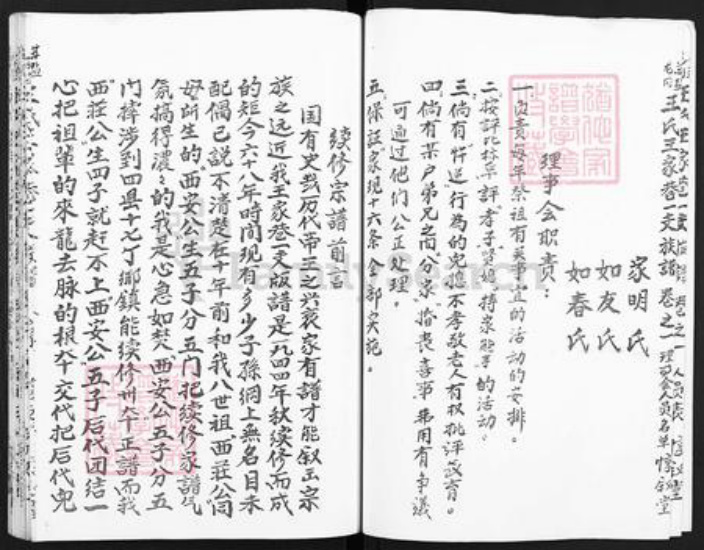 王氏王家巷一支族譜 卷之一 理事会人员名单 惇叙堂
家明氏
如友氏
如春氏
理事会职责：
一、负责每年祭祖有关事宜的活动的安排。
二、按評比榜单評孝子賢媳 持家能手的活动。
三、倘有忤逆行為的兒媳不孝敬老人有权批評教育。
四、倘有某户弟兄之间分家、婚喪喜事、費用有争議
可通过他们公正处理。
五、保証家規十六条全部实施。
续修宗譜前言
国有史哉历代帝王之兴衰家有譜才能叙正宗
族之远近我王家巷一支版譜是一九四四年秋续修而成
的矩今六十八年時間現有多少子孫網上無名目未
配偶已説不清楚在十年前和我八世祖西莊公同
母所生的西安公生五子分五门把续修家譜气
氛搞得濃々的我是心急如焚西安公五子分五
门摔涉到四县十七丁鄉鎮能续修卅夲正譜而我
西莊公生四子就赶不上西安公五子后代团结一
心把祖輩的來龍去脉的根夲交代把后代兒
FamilySearch